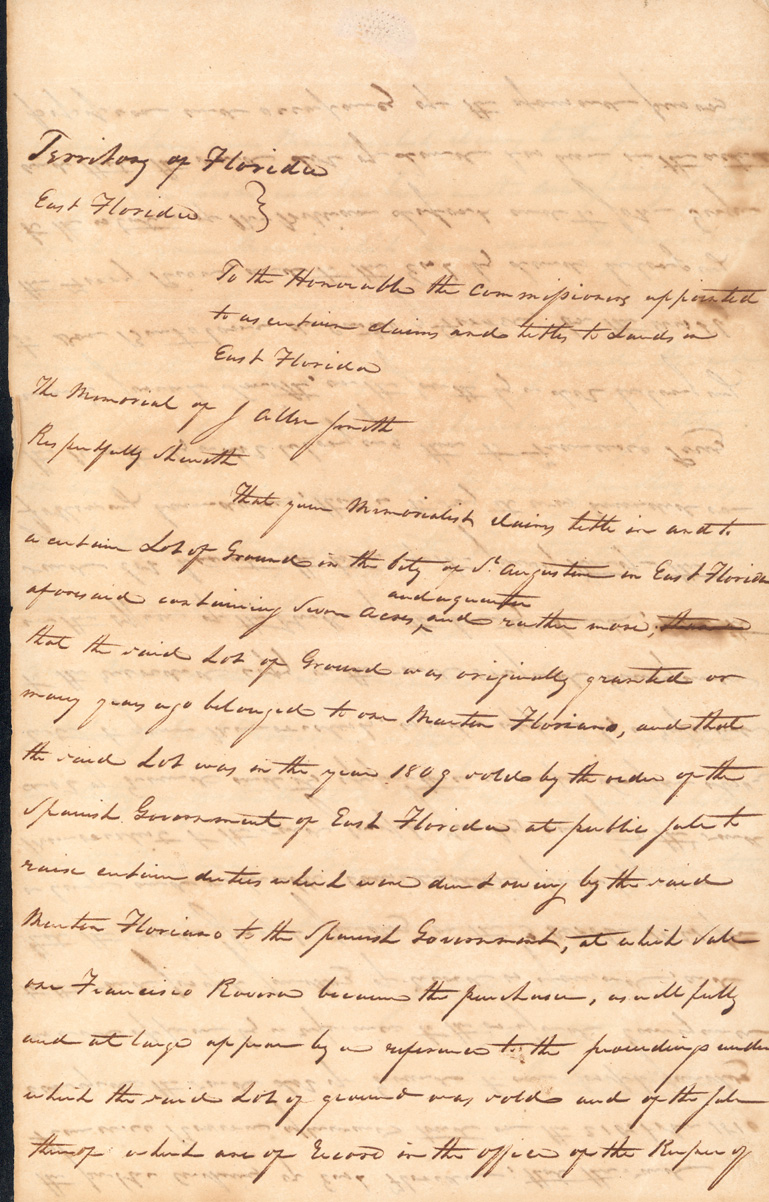 Territory of Florida
East Florida }
To the Honorable the Commissioners appointed
to ascertain claims and titles to Lands in
East Florida
The Memorial of J Allen Smith
Respectfully Sheweth
That your Memorialist claims title in and to
a certain Lot of Ground in the City of St. Augustine in East Florida
and a quarter
aforesaid containing Seven Acres, and rather more,
that the said Lot of Ground was originally granted or
many years ago belonged to one Martin Floriano, and that
the said Lot was in the year 1809 sold by the order of the
Spanish Government of East Florida at public Sale to
raise certain duties which were due & owing by the said
Martin Floriano to the Spanish Government, at which Sale
one Francisco Rovira became the purchaser, as will fully
and at large appear by a reference to the proceedings under
which the said Lot of ground was sold and of the Sale
thereof which are of Record in the office of the Keeper of